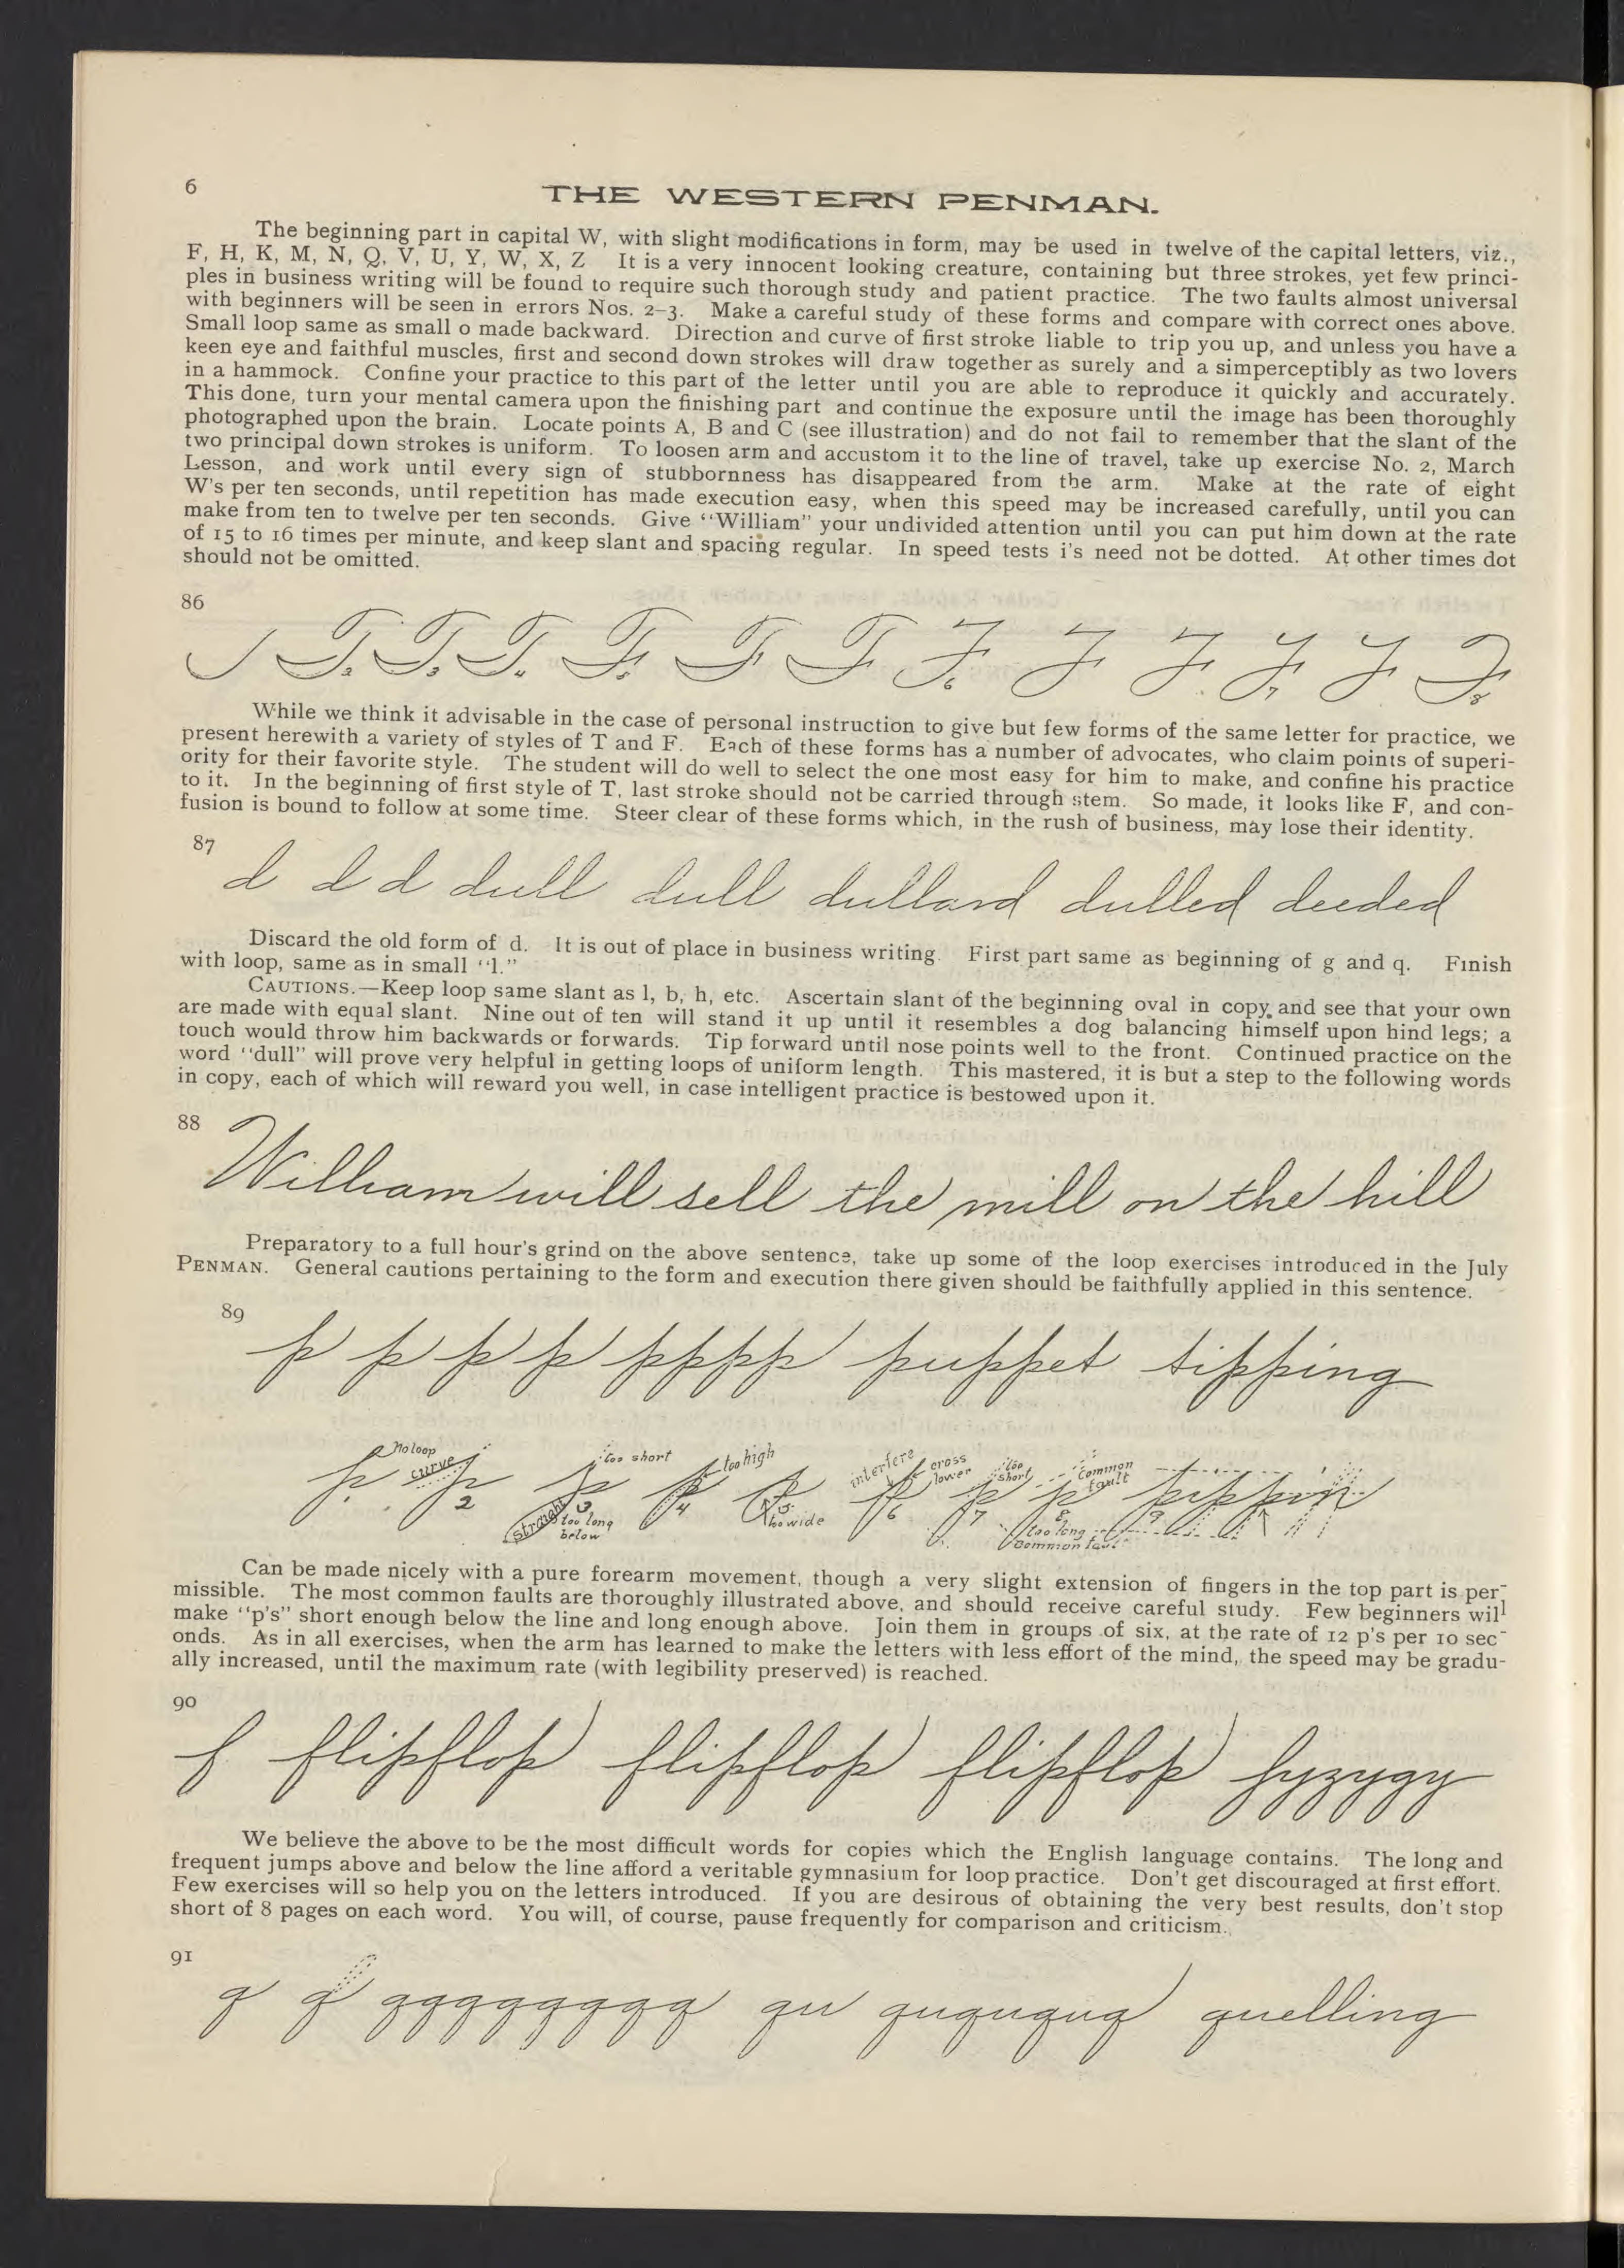 6
THE WESTERN PENMAN.
The beginning part in capital W, with slight modifications in form, may be used in twelve of the capital letters, viz.,
F, H, K, M, N, Q, V, U, Y, W, X, Z It is a very innocent looking creature, containing but three strokes, yet few princi-
ples in business writing will be found to require such thorough study and patient practice. The two faults almost universal
with beginners will be seen in errors Nos. 2–3. Make a careful study of these forms and compare with correct ones above.
Small loop same as small o made backward. Direction and curve of first stroke liable to trip you up, and unless you have a
keen eye and faithful muscles, first and second down strokes will draw together as surely and a simperceptibly as two lovers
in a hammock. Confine your practice to this part of the letter until you are able to reproduce it quickly and accurately.
This done, turn your mental camera upon the finishing part and continue the exposure until the image has been thoroughly
photographed upon the brain. Locate points A, B and C (see illustration) and do not fail to remember that the slant of the
two principal down strokes is uniform. To loosen arm and accustom it to the line of travel, take up exercise No. 2, March
Lesson, and work until every sign of stubbornness has disappeared from the arm. Make at the rate of eight
W's per ten seconds, until repetition has made execution easy, when this speed may be increased carefully, until you can
make from ten to twelve per ten seconds. Give "William" your undivided attention until you can put him down at the rate
of 15 to 16 times per minute, and keep slant and spacing regular. In speed tests i's need not be dotted. At other times dot
should not be omitted.
86
T 2 T 3 T 4 F 5 F T F 6 F F F 7 F F 8
While we think it advisable in the case of personal instruction to give but few forms of the same letter for practice, we
present herewith a variety of styles of T and F. Each of these forms has a number of advocates, who claim points of superi-
ority for their favorite style. The student will do well to select the one most easy for him to make, and confine his practice
to it. In the beginning of first style of T, last stroke should not be carried through stem. So made, it looks like F, and con-
fusion is bound to follow at some time. Steer clear of these forms which, in the rush of business, may lose their identity.
87
d d d dull dull dullard dulled deeded
Discard the old form of d. It is out of place in business writing. First part same as beginning of g and q. Finish
with loop, same as in small "l."
CAUTIONS.—Keep loop same slant as l, b, h, etc. Ascertain slant of the beginning oval in copy, and see that your own
are made with equal slant. Nine out of ten will stand it up until it resembles a dog balancing himself upon hind legs; a
touch would throw him backwards or forwards. Tip forward until nose points well to the front. Continued practice on the
word "dull" will prove very helpful in getting loops of uniform length. This mastered, it is but a step to the following words
in copy, each of which will reward you well, in case intelligent practice is bestowed upon it.
88
William will sell the mill on the hill
Preparatory to a full hour's grind on the above sentence, take up some of the loop exercises introduced in the July
PENMAN. General cautions pertaining to the form and execution there given should be faithfully applied in this sentence.
89
p p p p pppp puppet tipping
No loop curve too short too high interfere cross lower too short common fault
p 1 p 2 p 3 p 4 p 5 p 6 p 7 p 8 9
straight too long below too wide too long common fault
Can be made nicely with a pure forearm movement, though a very slight extension of fingers in the top part is per-
missible. The most common faults are thoroughly illustrated above, and should receive careful study. Few beginners will
make "p's" short enough below the line and long enough above. Join them in groups of six, at the rate of 12 p's per 10 sec-
onds. As in all exercises, when the arm has learned to make the letters with less effort of the mind, the speed may be gradu-
ally increased, until the maximum rate (with legibility preserved) is reached.
90
f flipflop flipflop flipflop fyzygy
We believe the above to be the most difficult words for copies which the English language contains. The long and
frequent jumps above and below the line afford a veritable gymnasium for loop practice. Don't get discouraged at first effort.
Few exercises will so help you on the letters introduced. If you are desirous of obtaining the very best results, don't stop
short of 8 pages on each word. You will, of course, pause frequently for comparison and criticism.
91
q q qqqqqqqqq qu ququququq quelling